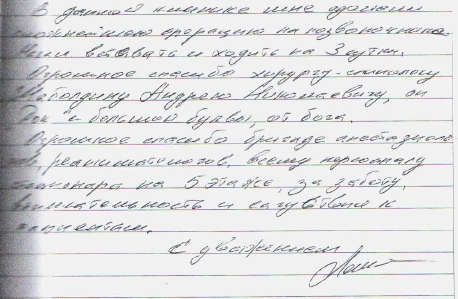 В данной клинике мне сделали
сложнейшую операцию на позвоночнике.
встать и ходить на 3 сутки.
Огромное спасибо хирургу-
Андрею Николаевичу, он
Док с большой буквы, от бога.
Огромное спасибо бригаде анестезиоло
реаниматологов, всему персоналу
стационара на 5 этаже, за заботу,
внимательность и к
пациентам.
С уважением